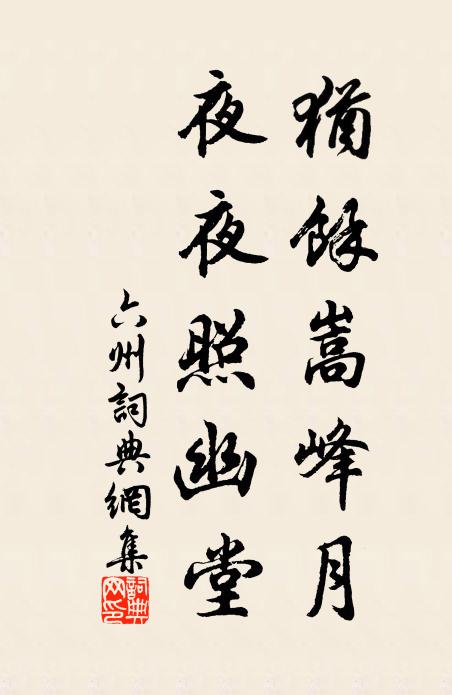 猶餘嵩峰月
夜夜照幽堂
六州詞典網集
詞典網印